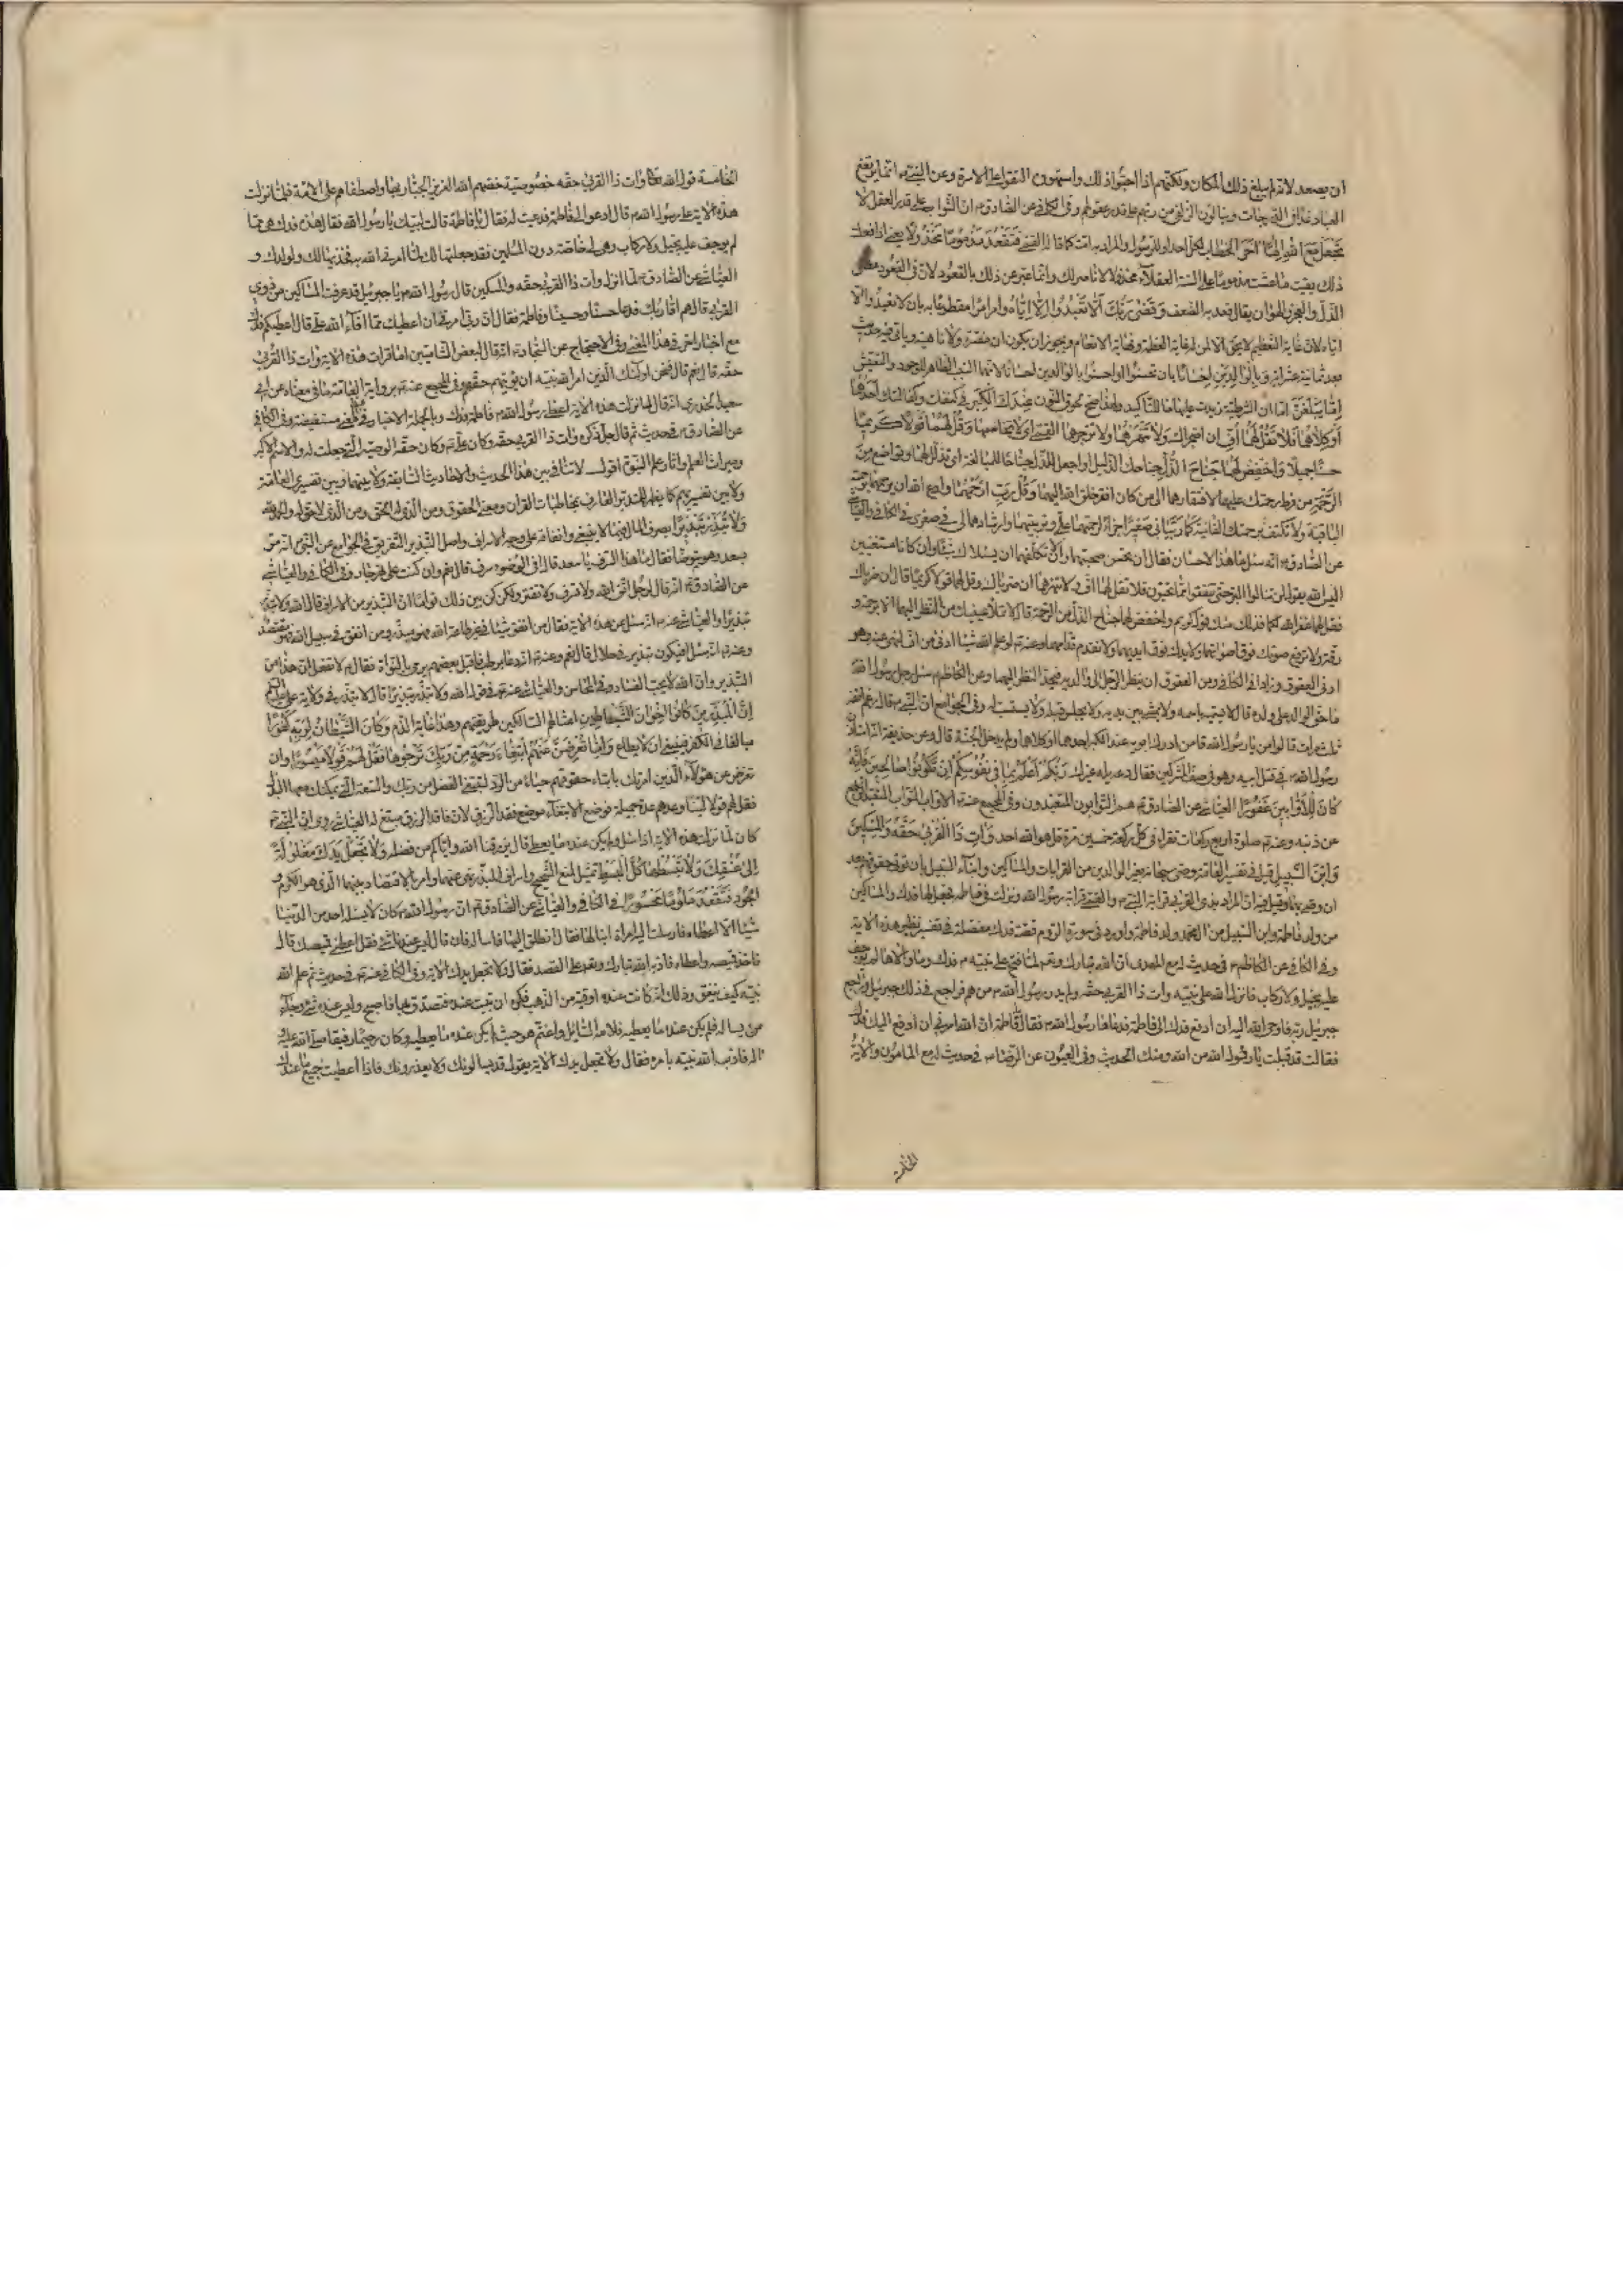 ان يصعد لانه لم يبلغ ذلك المكان ولكنهم اذا احبوا ذلك واستهووه التقوا على الاسرة وعن النبي انما يرتفع
العباد غدا في الدرجات وينالون الزلفى من ربهم على قدر عقولهم وفي الكافي عن الصادق ان الثواب على قدر العقل لا
تجعل مع الله الها اخر الخطاب لكل احد او للرسول والمراد به امته كما قاله القمي فتقعد مذموما مخذولا يعني اذا فعلت
ذلك بقيت ما عشت مذموما على السنة العقلاء مخذولا لا ناصر لك وانما عبر عن ذلك بالقعود لان في القعود معنى
الذل والعجز والهوان يقال قعد به الضعف وقضى ربك الا تعبدوا الا اياه وامر امرا مقطوعا به بان لا تعبدوا الا
اياه لان غاية التعظيم لا يحق الا لمن له غاية العظمة ونهاية الانعام ويجوز ان يكون ان مفسرة ولا ناهية وياتي فيه حديث
بعد ثمانية عشر اية وبالوالدين احسانا بان تحسنوا او احسنوا بالوالدين احسانا لانهما السبب الظاهر للوجود والتعيش
اما يبلغن اما ان الشرطية زيدت عليها ما للتاكيد ولهذا صح لحوق النون عندك الكبر في كنفك وكفالتك احدهما
او كلاهما فلا تقل لهما اف ان اضجراك ولا تنهرهما ولا تزجرهما القمي اي لا تخاصمهما وقل لهما قولا كريما
حسنا جميلا واخفض لهما جناح الذل جناحك الذليل او اجعل للذل جناحا للمبالغة اي تذلل لهما وتواضع من
الرحمة من فرط رحمتك عليهما لافتقارهما الى من كان افقر خلق الله اليهما وقل رب ارحمهما وادع الله ان يرحمهما برحمته
الباقية ولا تكتف برحمتك الفانية كما ربياني صغيرا جزاء لرحمتهما علي وتربيتهما وارشادهما لي في صغري في الكافي والعياشي
عن الصادق انه سئل ما هذا الاحسان فقال ان تحسن صحبتهما وان لا تكلفهما ان يسئلاك شيئا وان كانا مستغنيين
اليس الله يقول لن تنالوا البر حتى تنفقوا مما تحبون فلا تقل لهما اف ولا تنهرهما ان ضرباك وقل لهما قولا كريما قال ان ضرباك
فقل لهما غفر الله لكما فذلك منك قول كريم واخفض لهما جناح الذل من الرحمة قال لا تملا عينيك من النظر اليهما الا برحمة و
رقة ولا ترفع صوتك فوق اصواتهما ولا يدك فوق ايديهما ولا تقدم قدامهما وعنه لو علم الله شيئا ادنى من اف لنهى عنه وهو
ادنى العقوق وزاد في الكافي ومن العقوق ان ينظر الرجل الى والديه فيحد النظر اليهما وعن الكاظم سئل رجل رسول الله
ما حق الوالد على ولده قال لا يسميه باسمه ولا يمشي بين يديه ولا يجلس قبله ولا يستسب له وفي الجوامع ان النبي قال رغم انفه
ثلث مرات قالوا من يا رسول الله قال من ادرك ابويه عند الكبر احدهما او كلاهما ولم يدخل الجنة قال وعن حذيفة انه استاذن
رسول الله في قتل ابيه وهو في صف المشركين فقال دعه يله غيرك ربكم اعلم بما في نفوسكم ان تكونوا صالحين فانه
كان للاوابين غفورا العياشي عن الصادق هم التوابون المتعبدون وفي المجمع عنه الاواب التواب المتعبد الراجع
عن ذنبه وعنه صلوة اربع ركعات تقرا في كل ركعة خمسين مرة قل هو الله احد وات ذا القربى حقه والمسكين
وابن السبيل قيل في تفسير العامة وصى سبحانه بغير الوالدين من القرابات والمساكين وابناء السبيل بان تؤتى حقوقهم بعد
ان وصى بهما وقيل فيه ان المراد بذي القربى قرابة النبي والقمي قرابة رسول الله ونزلت في فاطمة فجعل لها فدك والمساكين
من ولد فاطمة وابن السبيل من ال محمد وولد فاطمة واورد في سورة الروم قصة فدك مفصلة في تفسير نظير هذه الاية
وفي الكافي عن الكاظم في حديث له مع المهدي ان الله تبارك وتعالى لما فتح على نبيه فدك وما والاها لم يوجف
عليه بخيل ولا ركاب فانزل الله على نبيه وات ذا القربى حقه ولم يدر رسول الله من هم فراجع في ذلك جبرئيل وراجع
جبرئيل ربه فاوحى الله اليه ان ادفع فدك الى فاطمة فدعاها رسول الله فقال لها يا فاطمة ان الله امرني ان ادفع اليك فدك
فقالت قد قبلت يا رسول الله من الله ومنك الحديث وفي العيون عن الرضا في حديث له مع المامون والاية
الخامسة
الخامسة قول الله تعالى وات ذا القربى حقه خصوصية خصهم الله العزيز الجبار بها واصطفاهم على الامة فلما نزلت
هذه الاية على رسول الله قال ادعوا لي فاطمة فدعيت له فقال يا فاطمة قالت لبيك يا رسول الله فقال هذه فدك هي مما
لم يوجف عليه بخيل ولا ركاب وهي لي خاصة دون المسلمين فقد جعلتها لك لما امرني الله به فخذيها لك ولولدك و
العياشي عن الصادق لما انزل الله وات ذا القربى حقه والمسكين قال رسول الله يا جبرئيل قد عرفت المساكين من ذوي
القربى قال هم اقاربك فدعا حسنا وحسينا وفاطمة فقال ان ربي امرني ان اعطيك مما افاء الله علي قال اعطيكم فدك
مع اخبار اخر في هذا المعنى وفي الاحتجاج عن السجاد انه قال لبعض الشاميين اما قرات هذه الاية وات ذا القربى
حقه قال نعم قال فنحن اولئك الذين امر الله نبيه ان يؤتيهم حقهم وفي المجمع عنه برواية العامة ما في معناه عن ابي
سعيد الخدري انه قال لما نزلت هذه الاية اعطى رسول الله فاطمة فدك وبالجملة الاخبار في هذا المعنى مستفيضة وفي الكافي
عن الصادق في حديث ثم قال جل ذكره وات ذا القربى حقه وكان علي وكان حقه الوصية التي جعلت له والاسم الاكبر
وميراث العلم واثار علم النبوة اقول لا تنافي بين هذا الحديث والاحاديث السابقة ولا بينهما وبين تفسيري العامة
ولا بين تفسيريهم كما يظهر للمتدبر العارف بمخاطبات القران ومعنى الحقوق ومن الذي له الحق ومن الذي لا حق له والحمد لله
ولا تبذر تبذيرا بصرف المال فيما لا ينبغي وانفاقه على وجه الاسراف واصل التبذير التفريق في الجوامع عن النبي انه مر
بسعد وهو يتوضا فقال ما هذا السرف يا سعد قال افي الوضوء سرف قال نعم وان كنت على نهر جار وفي الكافي والعياشي
عن الصادق انه قال لرجل اتق الله ولا تسرف ولا تقتر ولكن كن بين ذلك قواما ان التبذير من الاسراف قال الله ولا تبذر
تبذيرا والعياشي عنه انه سئل عن هذه الاية فقال من انفق شيئا في غير طاعة الله فهو مبذر ومن انفق في سبيل الله فهو مقتصد
وعنه انه سئل افيكون تبذير في حلال قال نعم وعنه انه دعا برطب فاقبل بعضهم يرمي بالنواة فقال لا تفعل ان هذا من
التبذير وان الله لا يحب الفساد وفي المحاسن والعياشي عنه في قول الله ولا تبذر تبذيرا قال لا تبذر في ولاية علي
ان المبذرين كانوا اخوان الشياطين امثالهم السالكين طريقتهم وهذا غاية الذم وكان الشيطان لربه كفورا
مبالغا في الكفر فينبغي ان لا يطاع واما تعرضن عنهم ابتغاء رحمة من ربك ترجوها فقل لهم قولا ميسورا وان
تعرض عن هؤلاء الذين امرتك بايتاء حقوقهم حياء من الرد لتبتغي الفضل من ربك والسعة التي يمكنك معها البذل
فقل لهم قولا لينا وعدهم عدة جميلة فوضع الابتغاء موضع فقد الرزق لان فاقد الرزق مبتغ له العياشي روي ان النبي
كان لما نزلت هذه الاية اذا سئل ولم يكن عنده ما يعطي قال يرزقنا الله واياكم من فضله ولا تجعل يدك مغلولة
الى عنقك ولا تبسطها كل البسط تمثيل لمنع الشحيح واسراف المبذر نهى عنهما وامر بالاقتصاد بينهما الذي هو الكرم و
الجود فتقعد ملوما محسورا في الكافي والعياشي عن الصادق ان رسول الله كان لا يسئله احد من الدنيا
شيئا الا اعطاه فارسلت اليه امراة ابنا لها فقالت انطلق اليه فاسئله فان قال ليس عندنا شئ فقل اعطني قميصك قال
فاخذ قميصه واعطاه فادبه الله تبارك وتعالى على القصد فقال ولا تجعل يدك الاية وفي الكافي عنه في حديث ثم علم الله
نبيه كيف ينفق وذلك انه كانت عنده اوقية من الذهب فكره ان تبيت عنده فتصدق بها فاصبح وليس عنده شئ وجاءه
من يساله فلم يكن عنده ما يعطيه فلامه السائل واغتم هو حيث لم يكن عنده ما يعطيه وكان رحيما رفيقا صلى الله عليه
اله فادب الله نبيه بامره فقال ولا تجعل يدك الاية يقول قد يسالونك ولا يعذرونك فاذا اعطيت جميع ما عندك